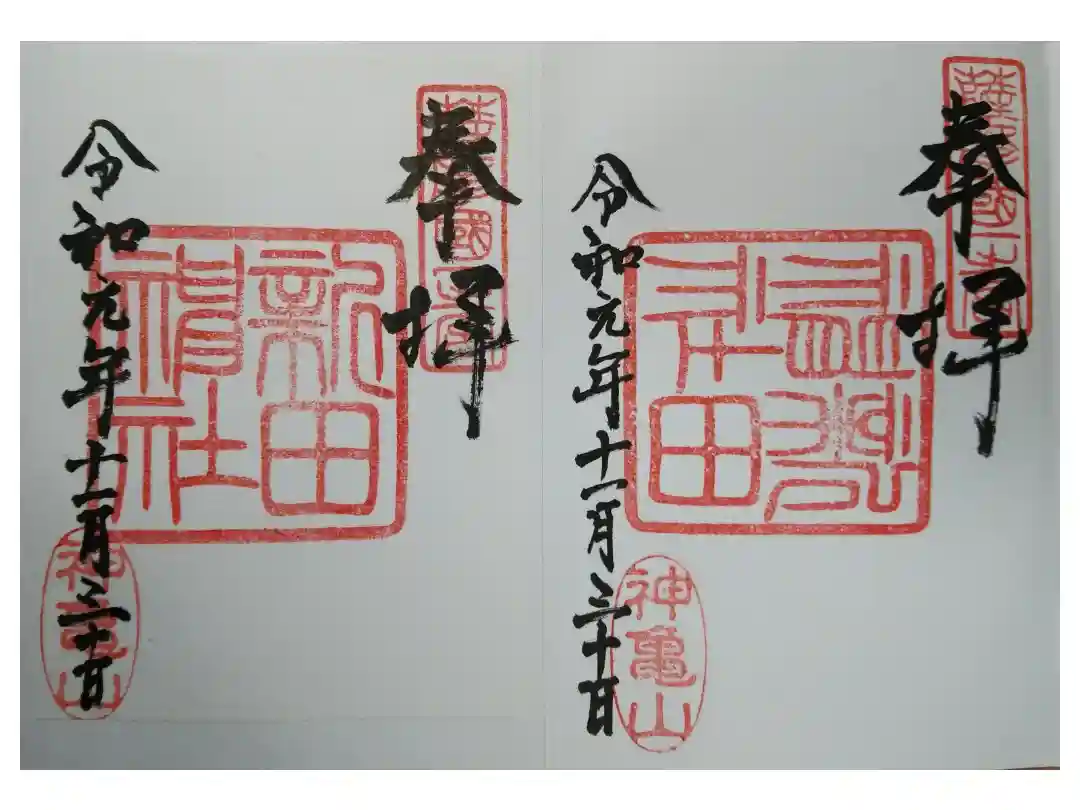 薩摩國一宮
奉拝
令和元年十一月三十日
神亀山
薩摩國一宮
奉拝
新田
神社
令和元年十一月三十日
神亀山